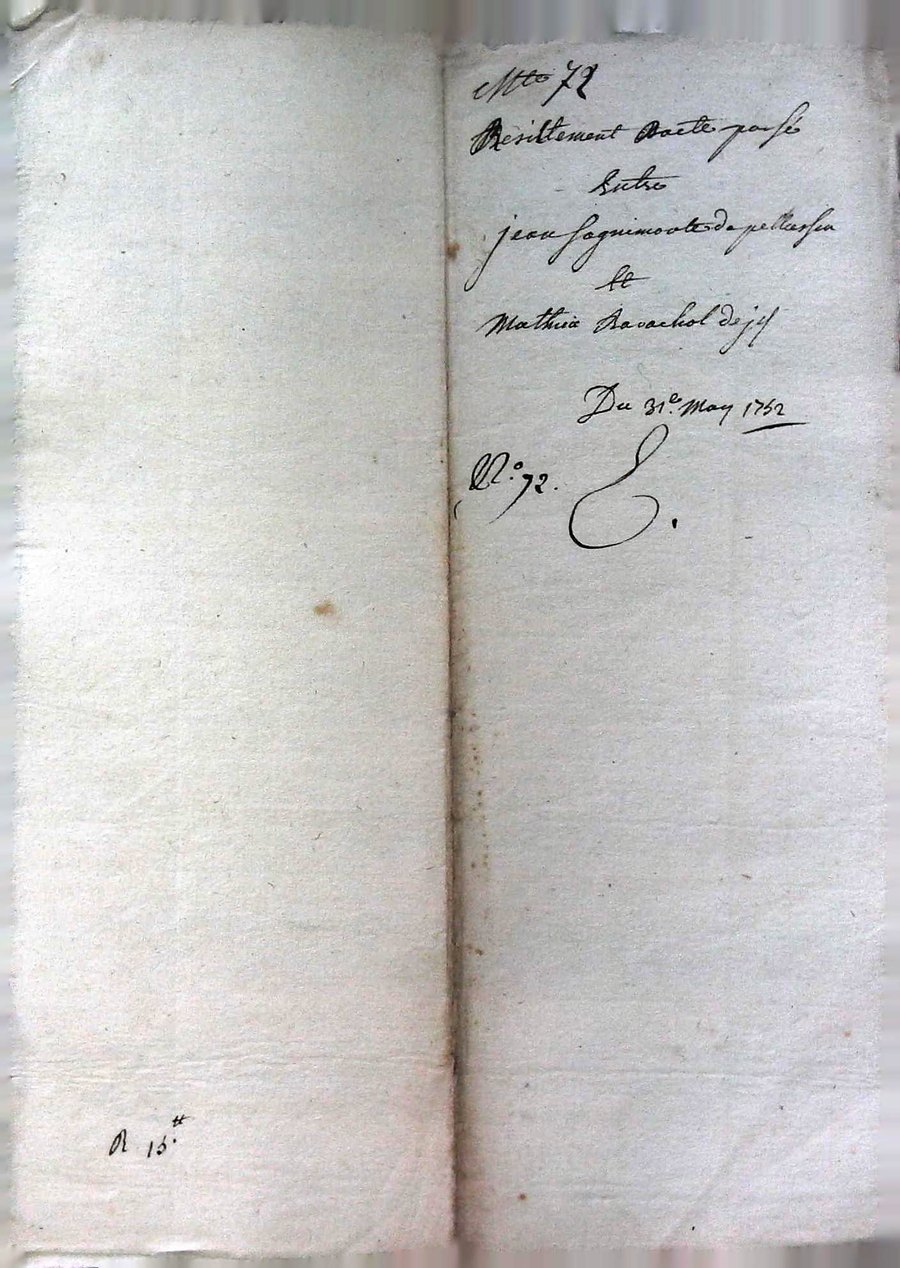 Cotte 72
Resiliement d'acte passé
Entre
jean Saquimoute de pellussin
Et
Mathieu Ravachol de jcy
Du 31e. May 1752
N.o 72.
R 15.tt